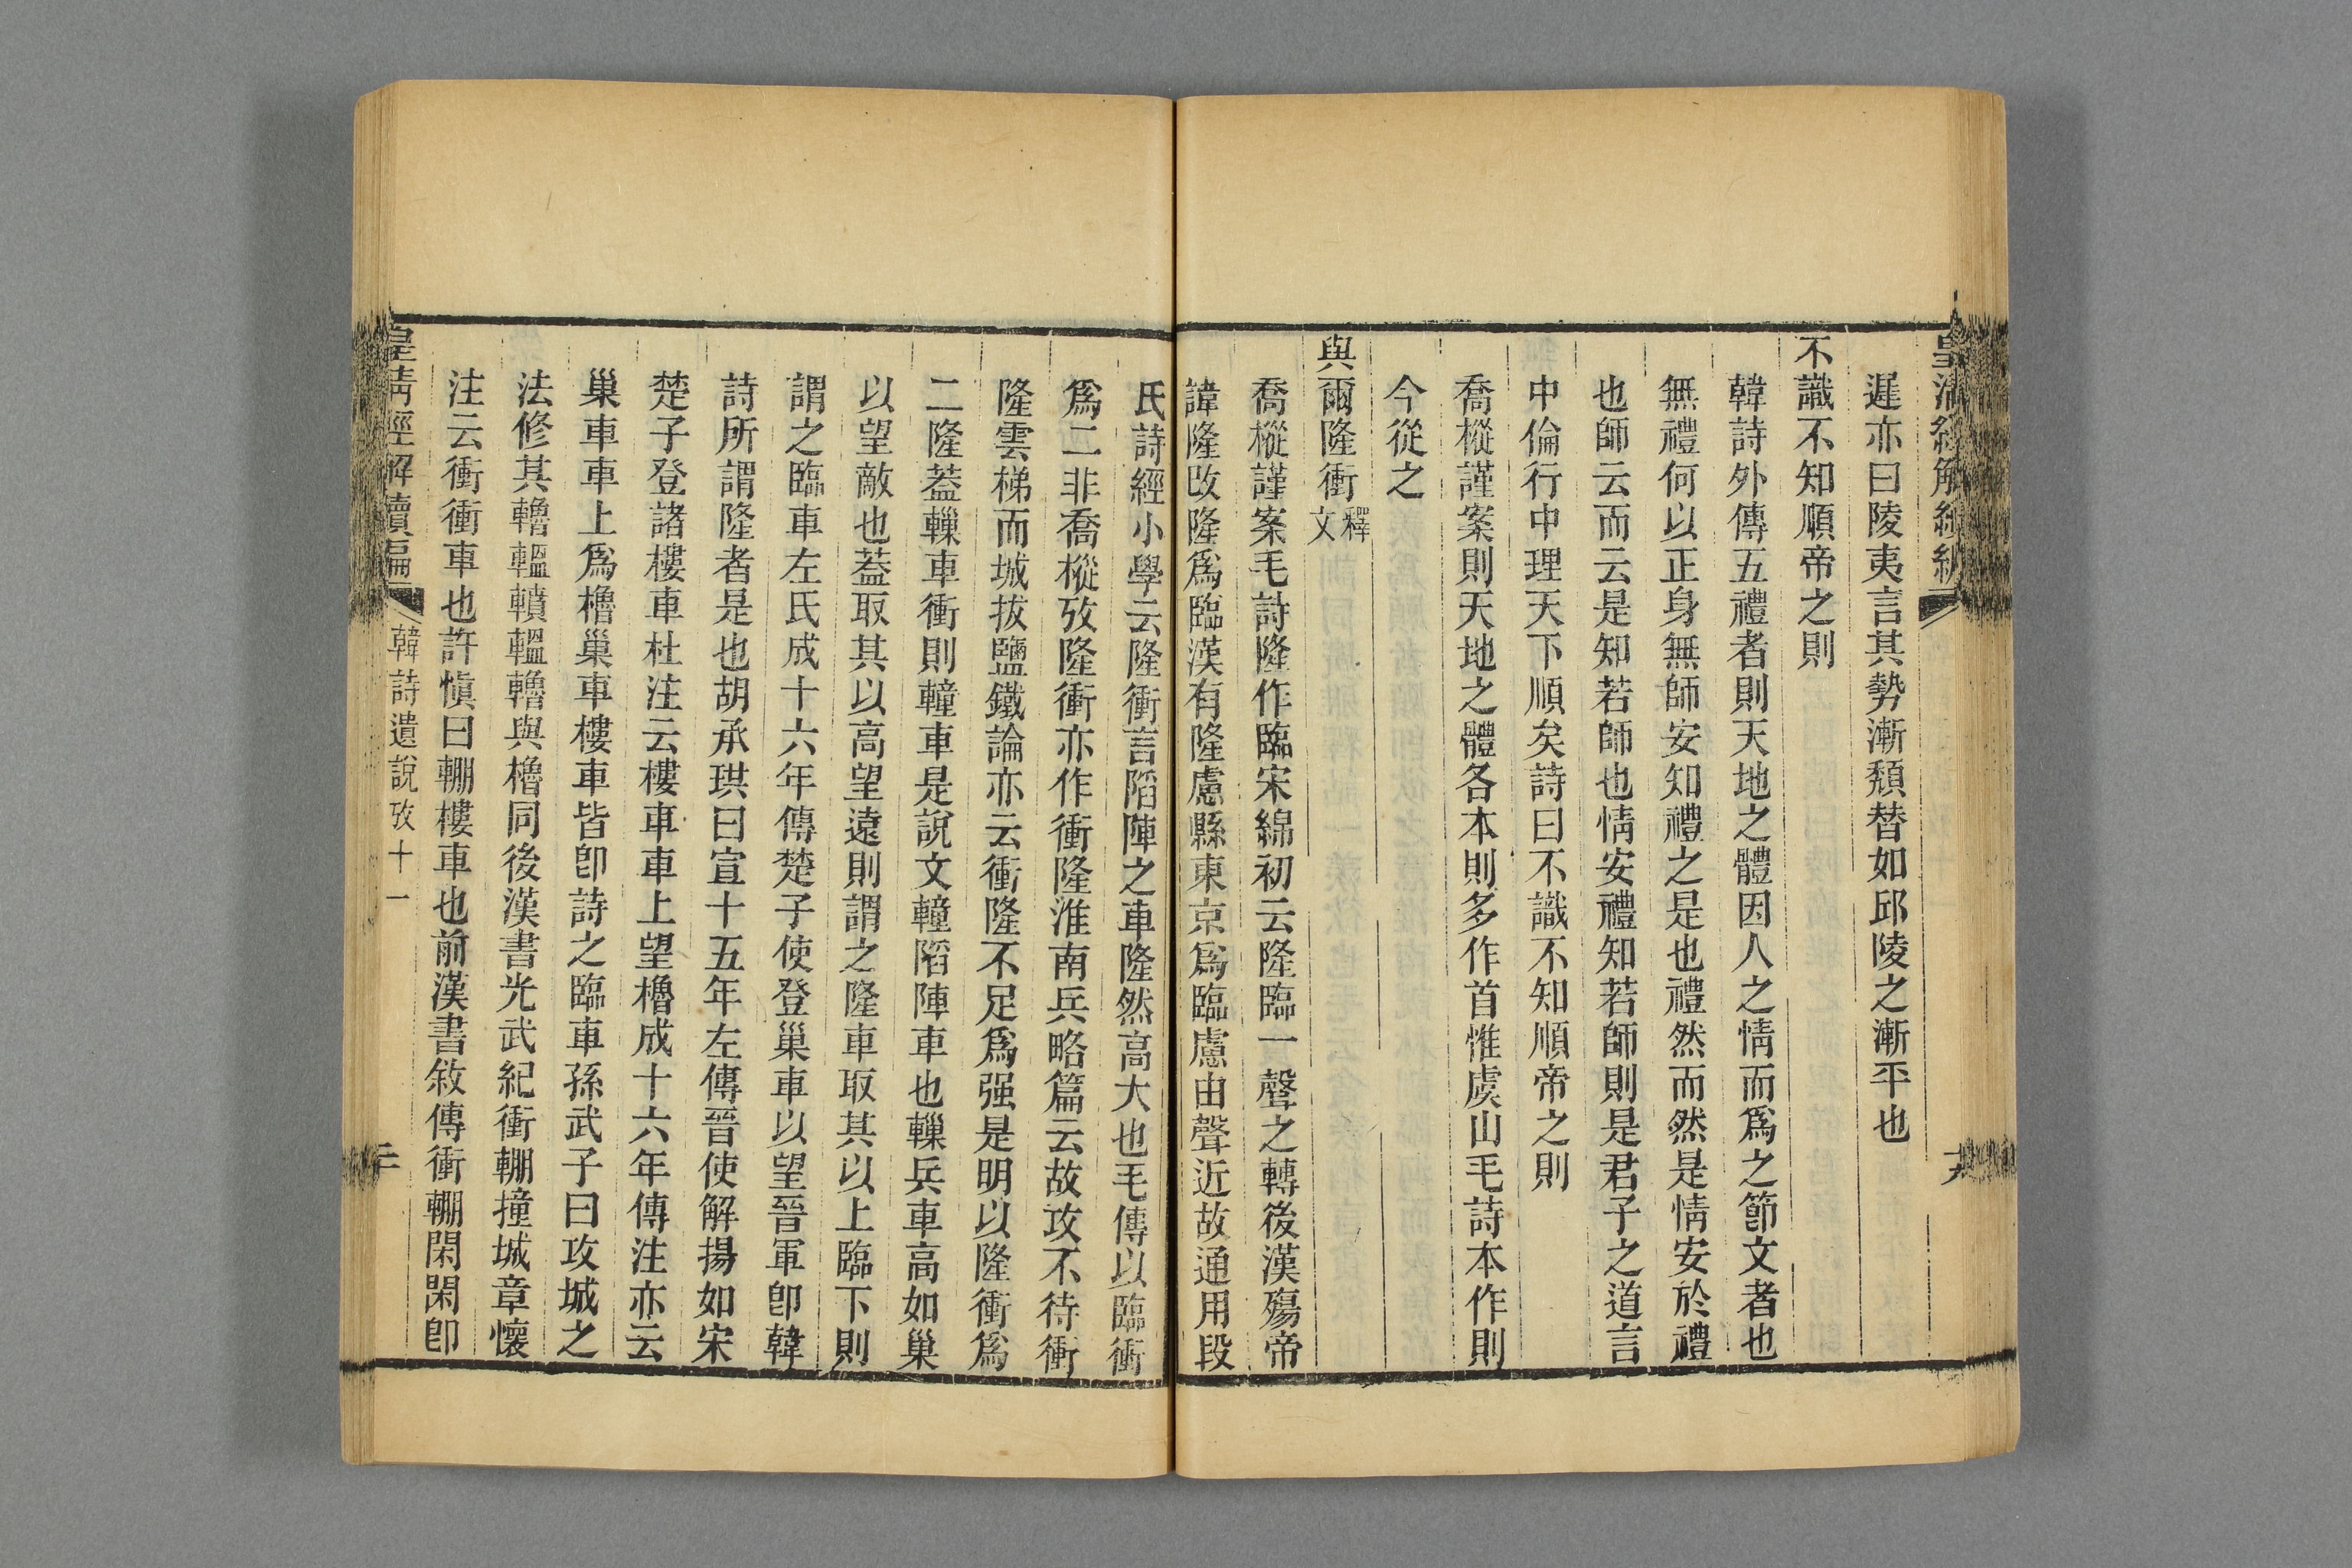 皇清經解續編
遲亦曰陵夷言其勢漸頹替如邱陵之漸平也
不識不知順帝之則
韓詩外傳五禮者則天地之體因人之情而爲之節文者也
無禮何以正身無師安知禮之是也禮然而然是情安於禮
也師云而云是知若師也情安禮知若師則是君子之道言
中倫行中理天下順矣詩曰不識不知順帝之則
喬樅謹案則天地之體各本則多作首惟虞山毛詩本作則
今從之
與爾隆衝釋文
喬樅謹案毛詩隆作臨宋綿初云隆臨一聲之轉後漢殤帝
諱隆改隆爲臨漢有隆慮縣東京爲臨慮由聲近故通用段
氏詩經小學云隆衝言䧟陣之車隆然高大也毛傳以臨衝
爲二非喬樅攷隆衝亦作衝隆淮南兵略篇云故攻不待衝
隆雲梯而城拔鹽鐵論亦云衝隆不足爲强是明以隆衝爲
二隆葢轈車衝則䡴車是說文䡴䧟陣車也轈兵車高如巢
以望敵也葢取其以高望遠則謂之隆車取其以上臨下則
謂之臨車左氏成十六年傳楚子使登巢車以望晉軍卽韓
詩所謂隆者是也胡承珙曰宣十五年左傳晉使解揚如宋
楚子登諸樓車杜注云樓車車上望櫓成十六年傳注亦云
巢車車上爲櫓巢車樓車皆卽詩之臨車孫武子曰攻城之
法修其轒轀轒轀轒與櫓同後漢書光武紀衝輣撞城章懷
注云衝衝車也許愼曰輣樓車也前漢書敘傳衝輣閑閑卽
皇清經解續編 韓詩遺說攷十一